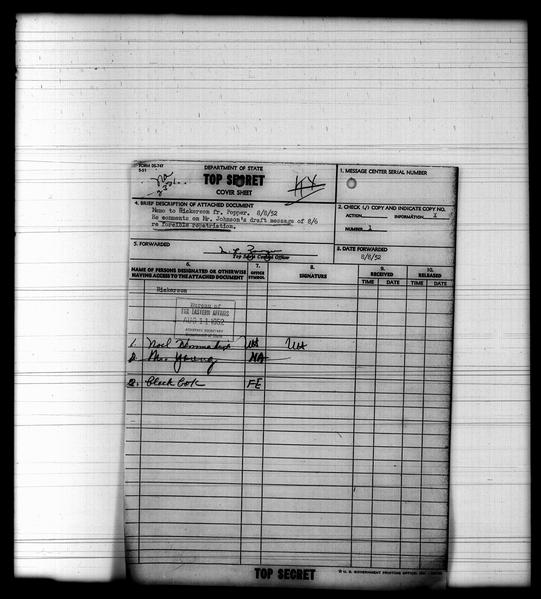 FORM DS-747
5-51
DEPARTMENT OF STATE
TOP SECRET
COVER SHEET
1. MESSAGE CENTER SERIAL NUMBER
4. BRIEF DESCRIPTION OF ATTACHED DOCUMENT
Memo to Hickerson fr. Popper. 8/8/52
Re comments on Mr. Johnson's draft message of 8/6
re forcible repatriation.
2. CHECK (✓) COPY AND INDICATE COPY NO.
ACTION INFORMATION X
NUMBER 1
5. FORWARDED
Top Secret Control Officer
3. DATE FORWARDED
8/8/52
6.
NAME OF PERSONS DESIGNATED OR OTHERWISE
HAVING ACCESS TO THE ATTACHED DOCUMENT
7.
OFFICE
SYMBOL
8.
SIGNATURE
9.
RECEIVED
10.
RELEASED
TIME DATE TIME DATE
Hickerson
Bureau of
FAR EASTERN AFFAIRS
AUG 11 1952
Department of State
1. Noel
2. Mrs Young NA
3. Black Book FE
TOP SECRET
U. S. GOVERNMENT PRINTING OFFICE